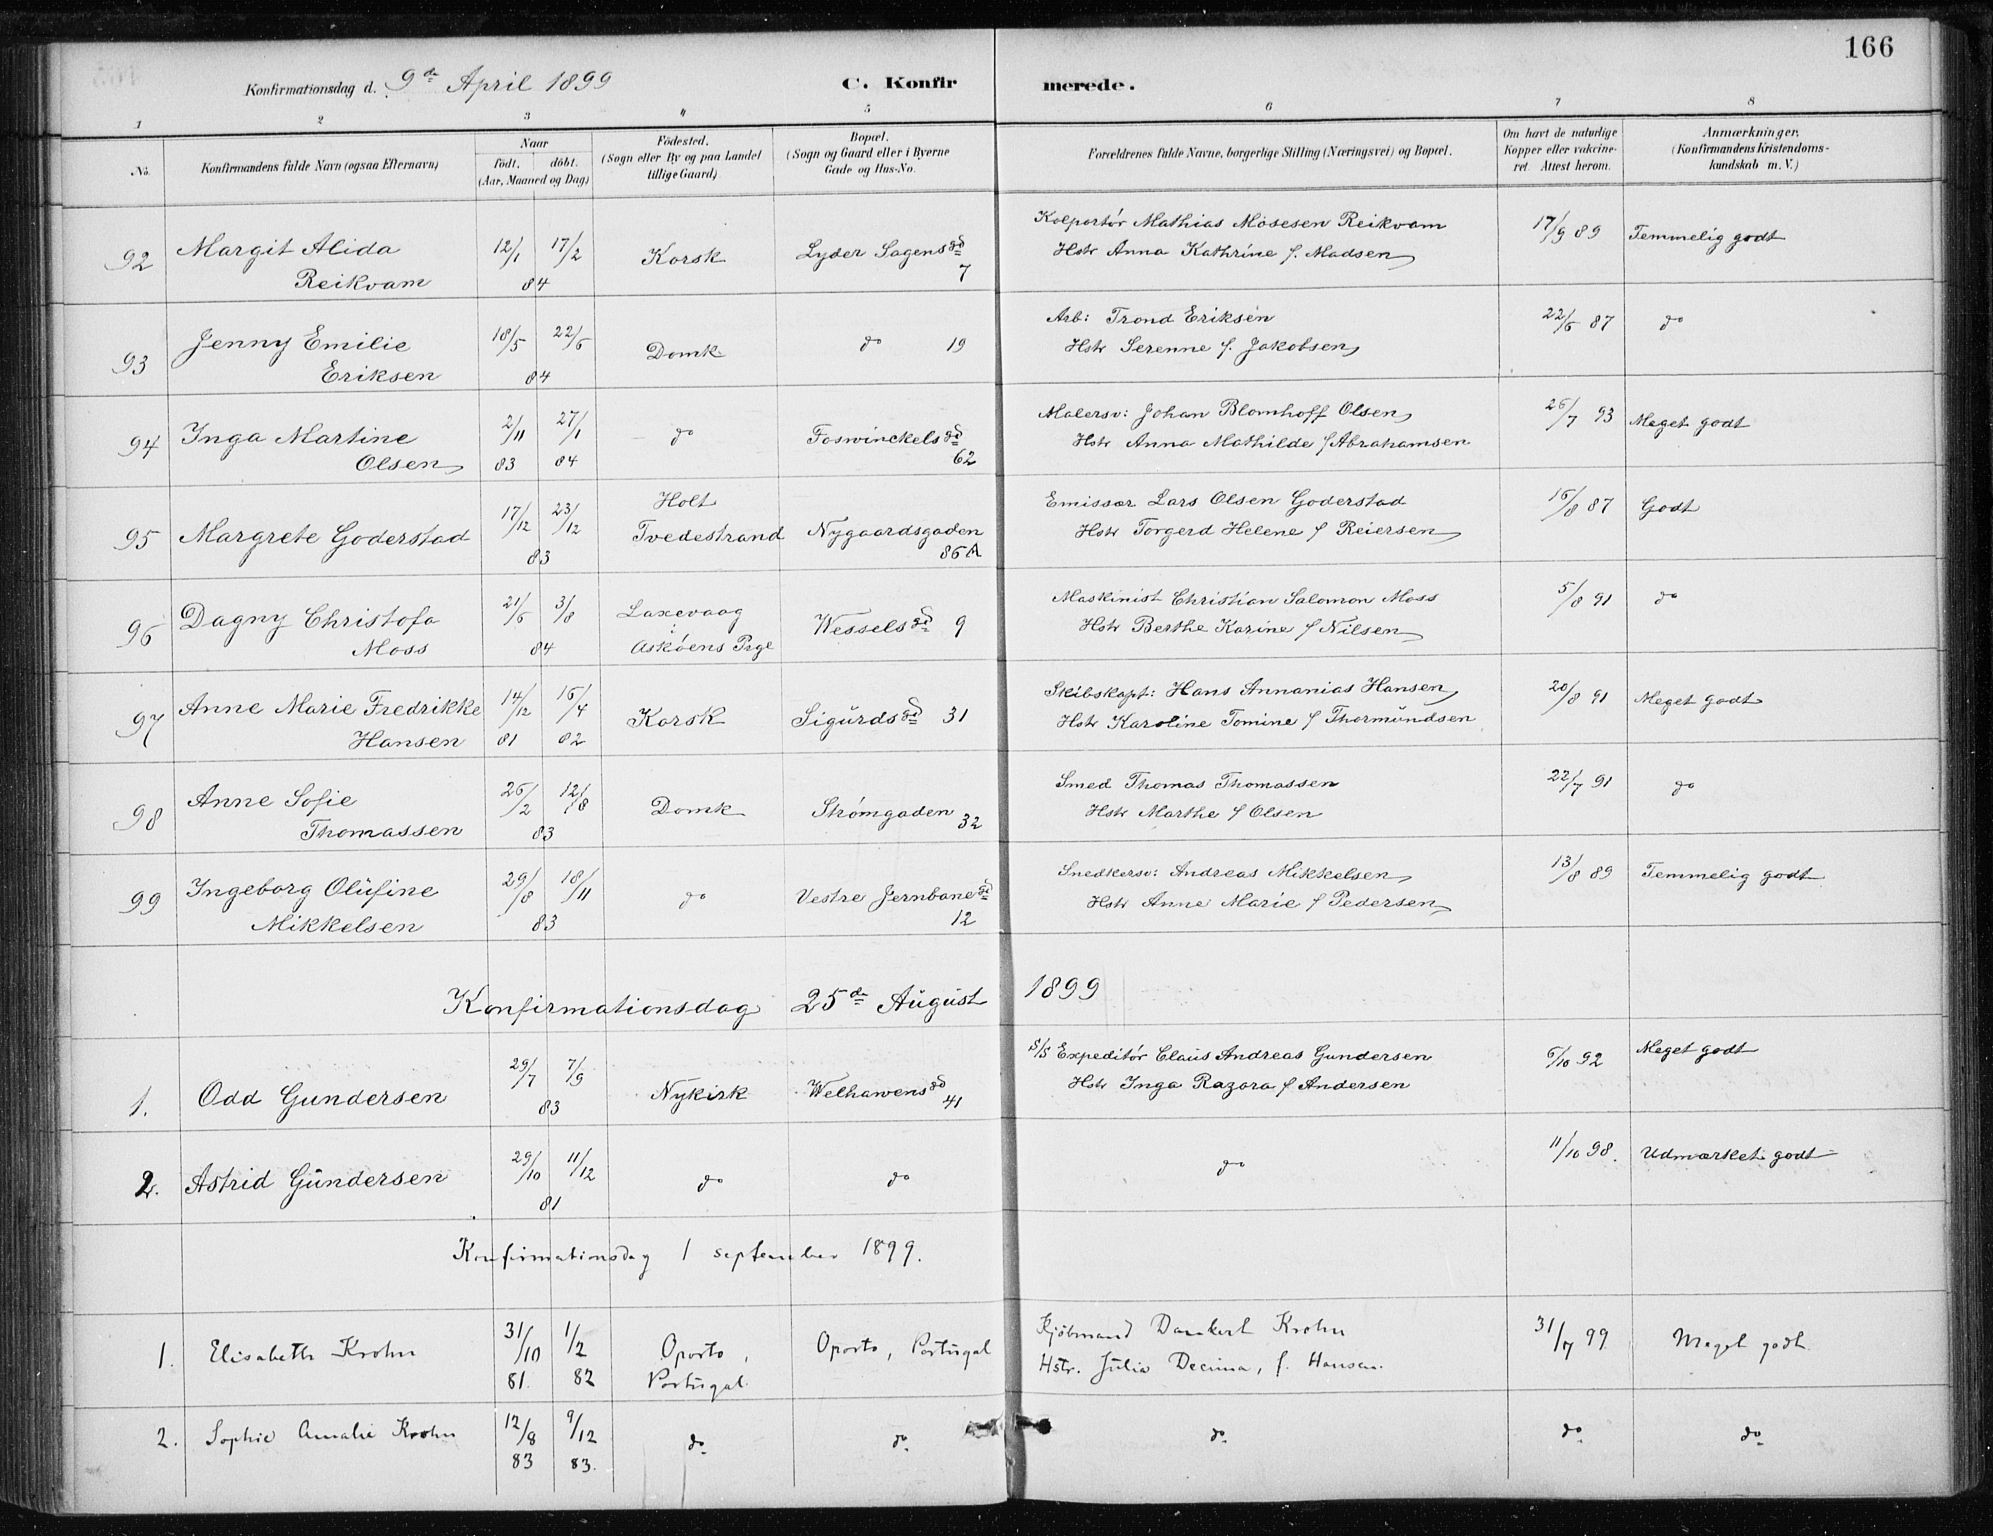 166
Konfirmationsdag d. 9de April 1899 C. Konfirmerede.
1 2 3 4 5 6 7 8
No. Konfirmandens fulde Navn (ogsaa Efternavn) Naar födt. döbt. (Aar, Maaned og Dag) Födested. (Sogn eller By og paa Landet tillige Gaard) Bopæl. (Sogn og Gaard eller i Byerne Gade og Hus-No. Forældrenes fulde Navne, borgerlige Stilling (Næringsvei) og Bopæl. Om havt de naturlige Kopper eller vakcineret. Attest herom. Anmærkninger. (Konfirmandens Kristendomskundskab m. V.)
92 Margit Alida 12/1 17/2 Korsk Lyder Sagens gd Kolportör Mathias Mosesen Reikvam 17/9 89 Temmelig godt
Reikvam 84 7 Hstr Anna Kathrine f. Madsen
93 Jenny Emilie 18/5 22/6 Domk do 19 Arb: Trond Eriksen 22/6 87 do
Eriksen 84 Hstr Serenne f. Jakobsen
94 Inga Martine 2/11 27/1 do Foswinckels gd Malersv: Johan Blomhoff Olsen 26/7 93 Meget godt
Olsen 83 84 62 Hstr Anna Mathilde f Abrahamsen
95 Margrete Goderstad 17/12 23/12 Holt Tvedestrand Nygaardsgaden Emissær Lars Olsen Goderstad 16/8 87 Godt
83 86 A Hstr Torgerd Helene f Reiersen
96 Dagny Christofa 21/6 3/8 Laxevaag Wessels gd 9 Maskinist Christian Salomon Moss 5/8 91 do
Moss 84 Asköens Prge Hstr Berthe Karine f Nilsen
97 Anne Marie Fredrikke 14/12 16/4 Korsk Sigurds gd 31 Skibskapt: Hans Annanias Hansen 20/8 91 Meget godt
Hansen 81 82 Hstr Karoline Tomine f Thormundsen
98 Anne Sofie 26/2 12/8 Domk Strömgaden 32 Smed Thomas Thomassen 22/7 91 do
Thomassen 83 Hstr Marthe f Olsen
99 Ingeborg Olufine 29/8 18/11 do Vestre Jernbane gd Snedkersv: Andreas Mikkelsen 13/8 89 Temmelig godt
Mikkelsen 83 12 Hstr Anne Marie f Pedersen
Konfirmationsdag 25de August 1899
1. Odd Gundersen 29/7 7/9 Nykirk Welhavens gd S/S Expeditör Claus Andreas Gundersen 6/10 92 Meget godt
83 41 Hstr Inga Razora f Andersen
2. Astrid Gundersen 29/10 11/12 do do do 11/10 98. Udmærket godt
81
Konfirmationsdag 1 september 1899.
1. Elisabeth Krohn 31/10 1/2 Oporto, Oporto, Portugal Kjöbmand Dankert Krohn 31/7 99 Meget godt.
81. 82 Portugal. Hstr. Julia Decima, f. Hansen.
2. Sophie Amalie Krohn 12/8 9/12 do do. do. do. do.
83 83.